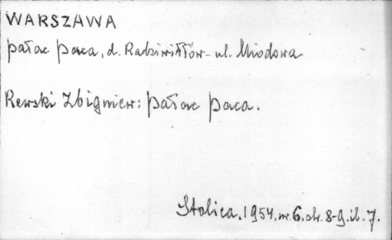 WARSZAWA
pałac Paca, d. Radziwiłłów - ul. Miodowa
Rewski Zbigniew: Pałac Paca.
Stolica, 1954, nr. 6. str. 8-9. il. 7.